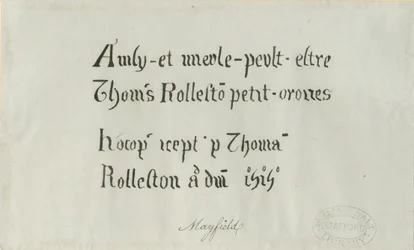 Amly - et mevle - pevlt - estre
Thoms Rollestō petit - orones
Hoc op' icept' p Thomā
Rolleston aº dm̄ isis
Mayfield